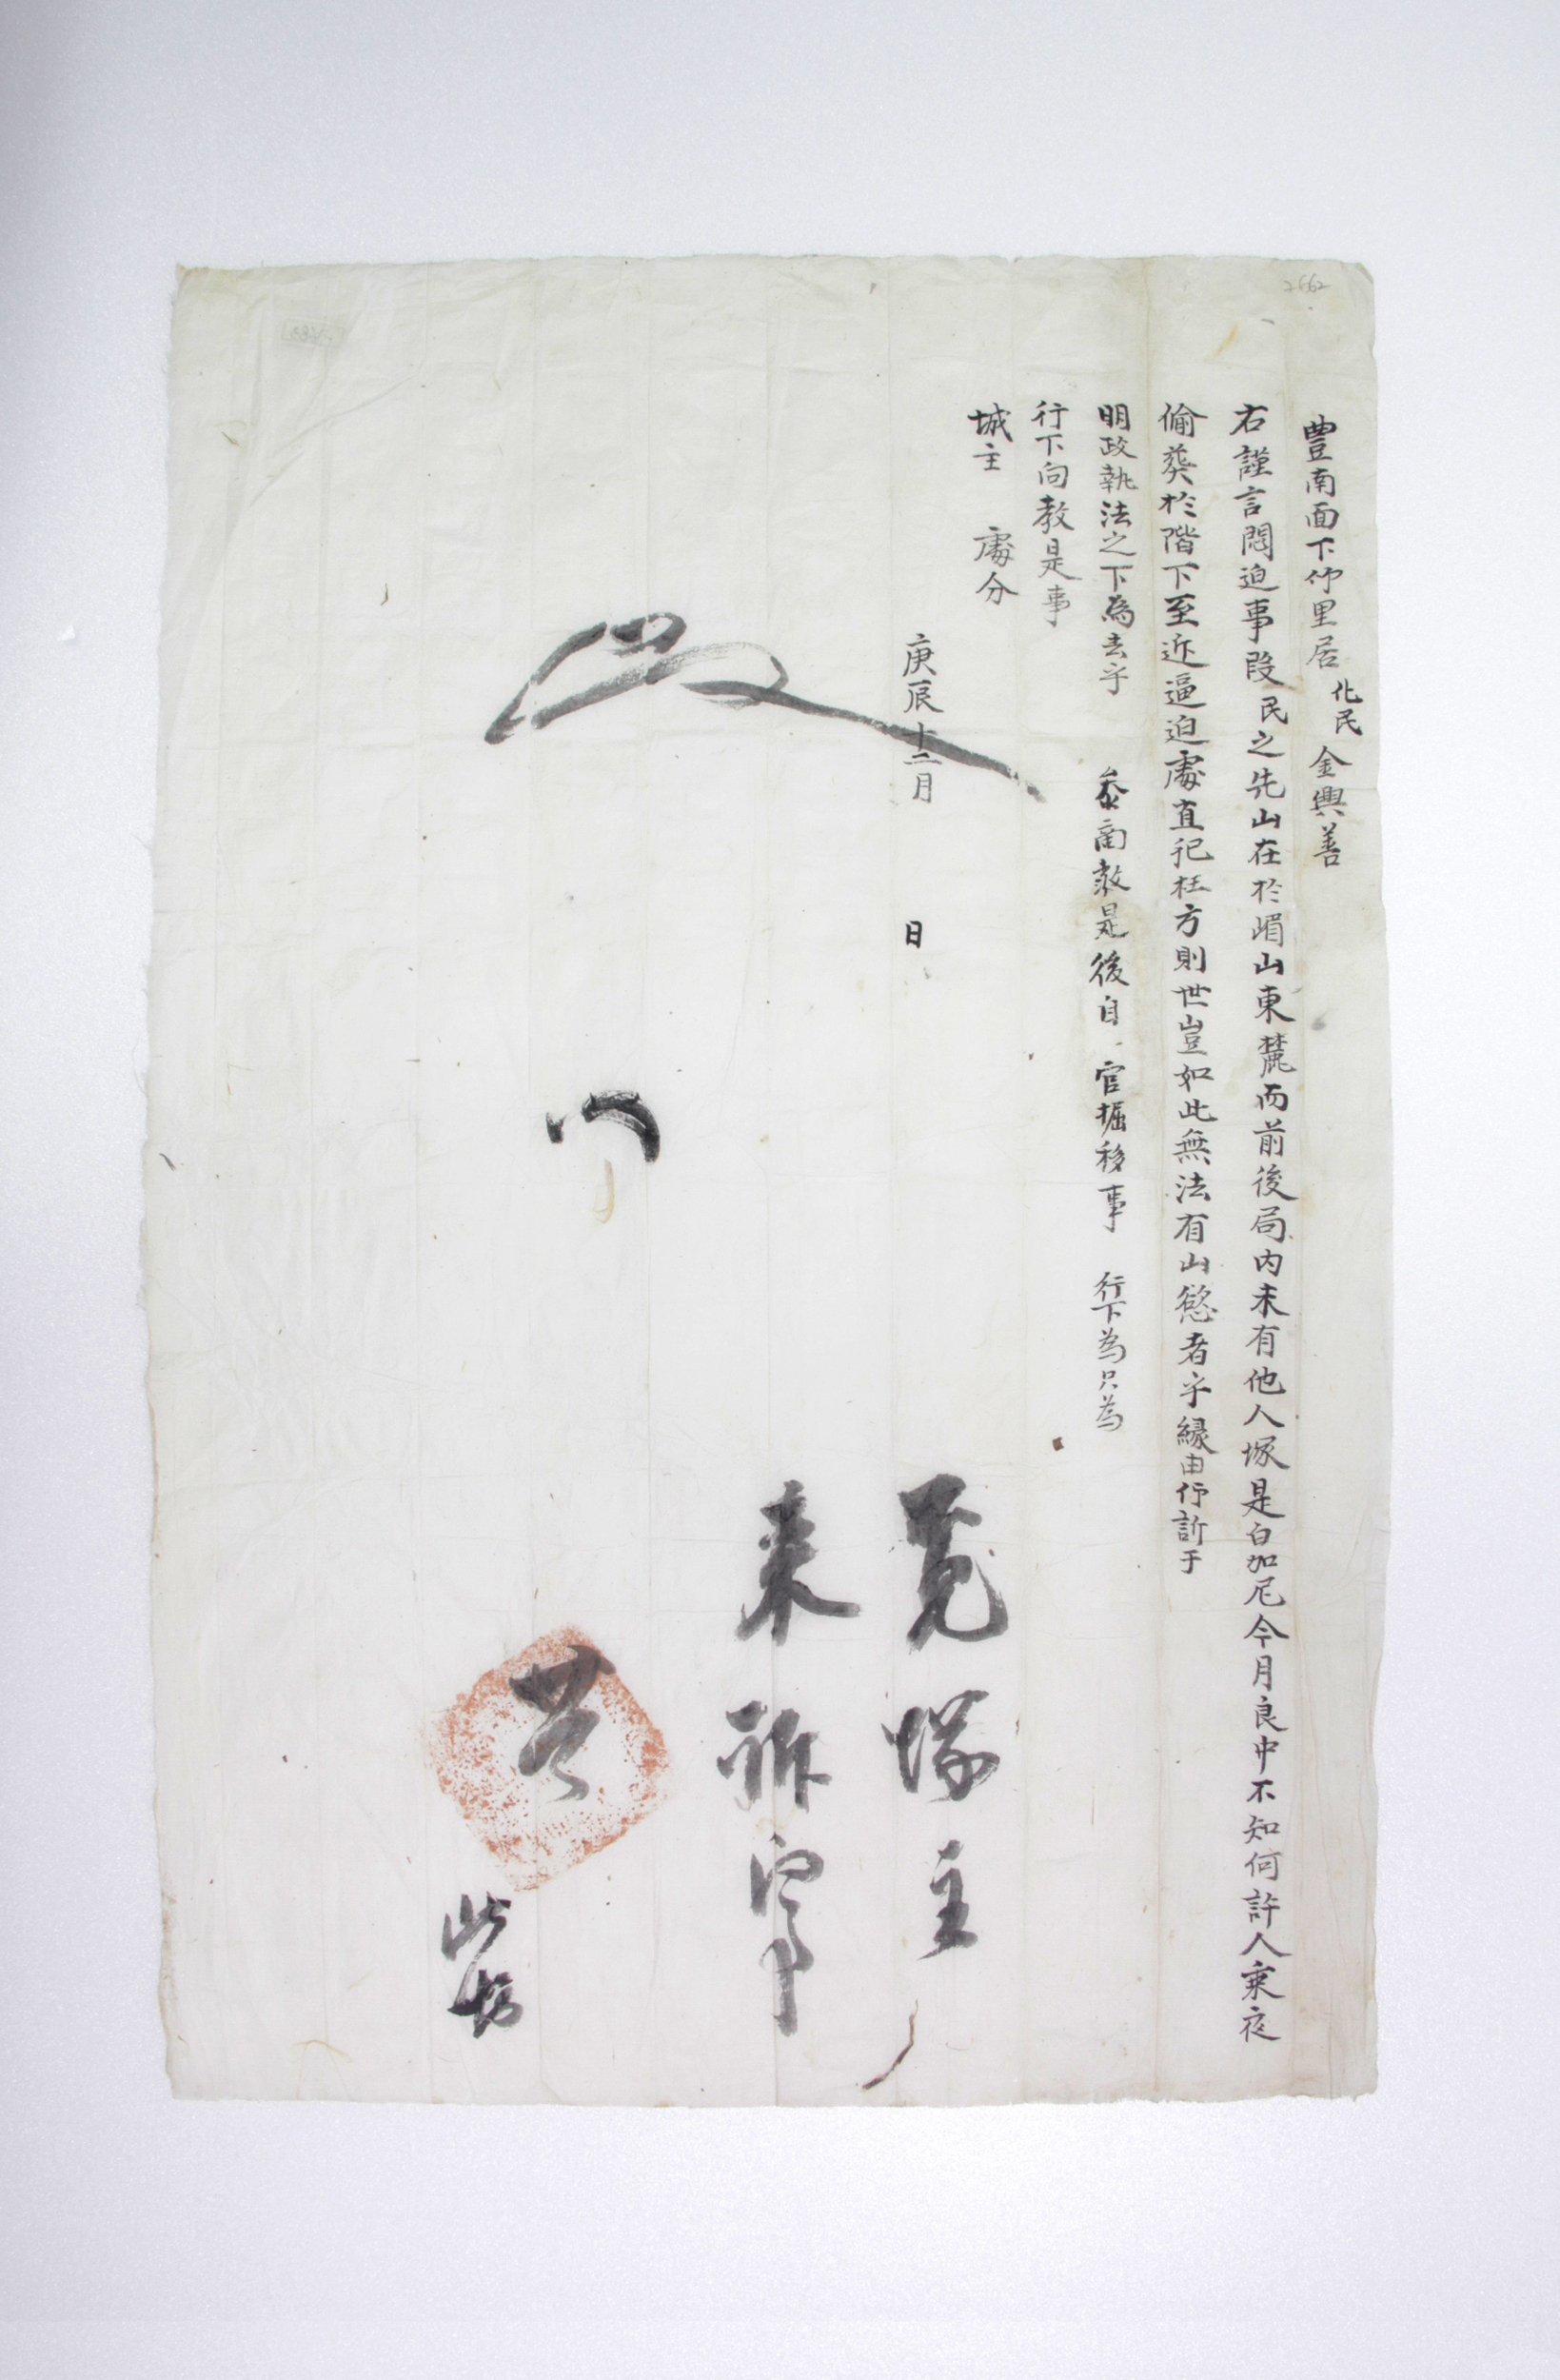 豊南面下仰里居 化民 金興善
右謹言悶迫事段民之先山在於嵋山東麓而前後局內未有他人塚是白加尼今月良中不知何許人乘夜
偷葬於階下至近逼迫處直祀枉方則世豈如此無法有山慾者乎緣由仰訴于
明政執法之下為去乎 叅商敎是後自 官掘移事 行下為只為
行下向教是事
城主 處分
庚辰十二月 日
覓塚主
来訴事
此
2662